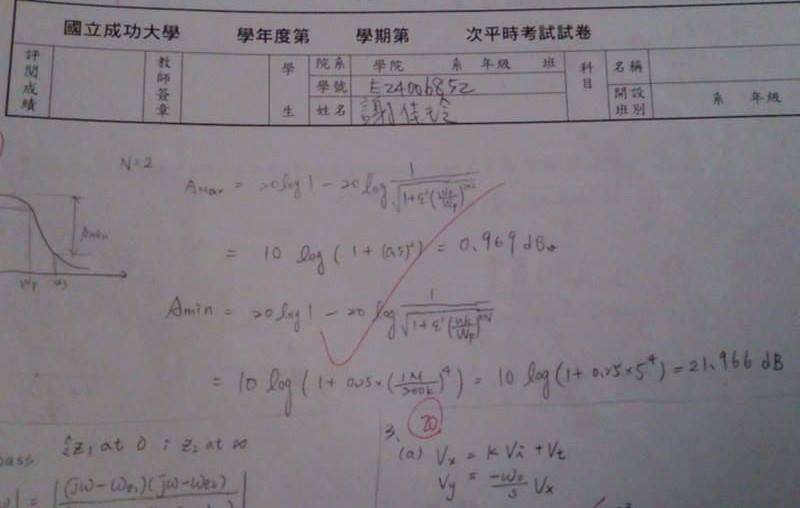 國立成功大學 學年度第 學期第 次平時考試試卷
評閱成績 教師簽章 學生 院系 學院 系 年級 班 科目 名稱
學號 E24006852 開設班別 系 年級
姓名 謝佳玲
N=2
Amax = 20log1 - 20log 1/√(1+ε²(Wp/Wp)^2N)
= 10 log(1+(0.5)²) = 0.969 dB
Amin
Wp Ws
Amin = 20log1 - 20log 1/√(1+ε²(Ws/Wp)^2N)
= 10 log(1+0.25×(1M/200k)^4) = 10 log(1+0.25×5^4) = 21.966 dB
20
pass Z1 at 0 ; Z2 at ∞
= |(jω-ωz1)(jω-ωz2)
3.
(a) Vx = kVi + Vt
Vy = -ωo/s Vx